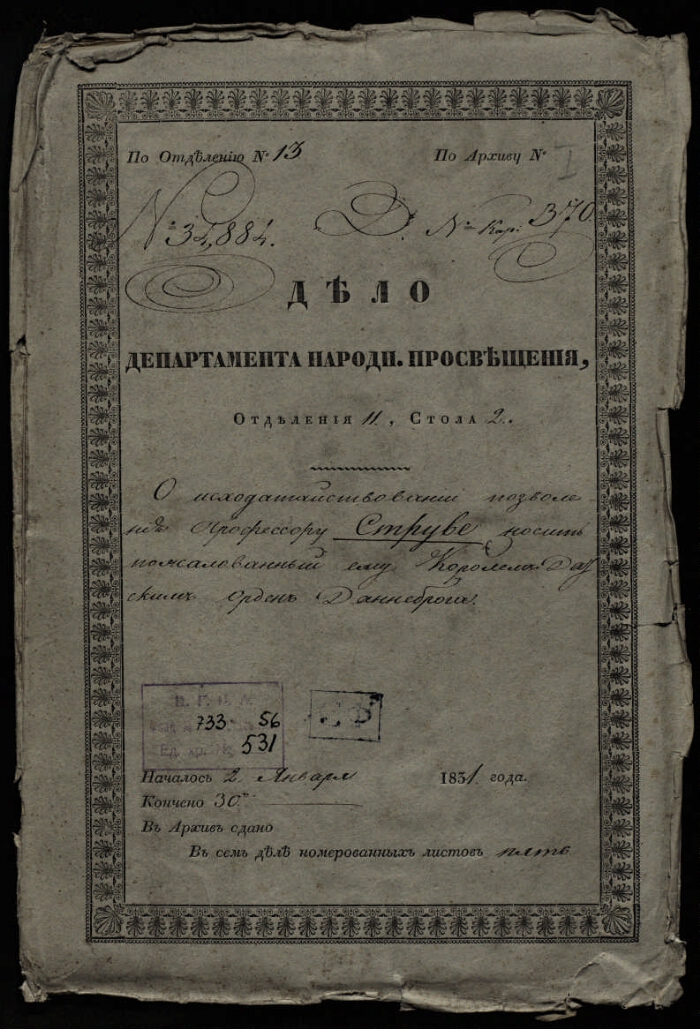 По Отдѣленію № 13
По Архиву №
I
№ 34,884.
Д. № Кар: 370
ДѢЛО
ДЕПАРТАМЕНТА НАРОДН. ПРОСВѢЩЕНІЯ,
Отдѣленія II, Стола 2.
О исходатайствованіи позволе-
нія Профессору Струве носить
пожалованный ему Королемъ Дат-
скимъ орденъ Даннеброга.
733 56
531
Началось 2 Января 1831 года.
Кончено 30го
Въ Архивъ сдано
Въ семъ дѣлѣ номерованныхъ листовъ пять